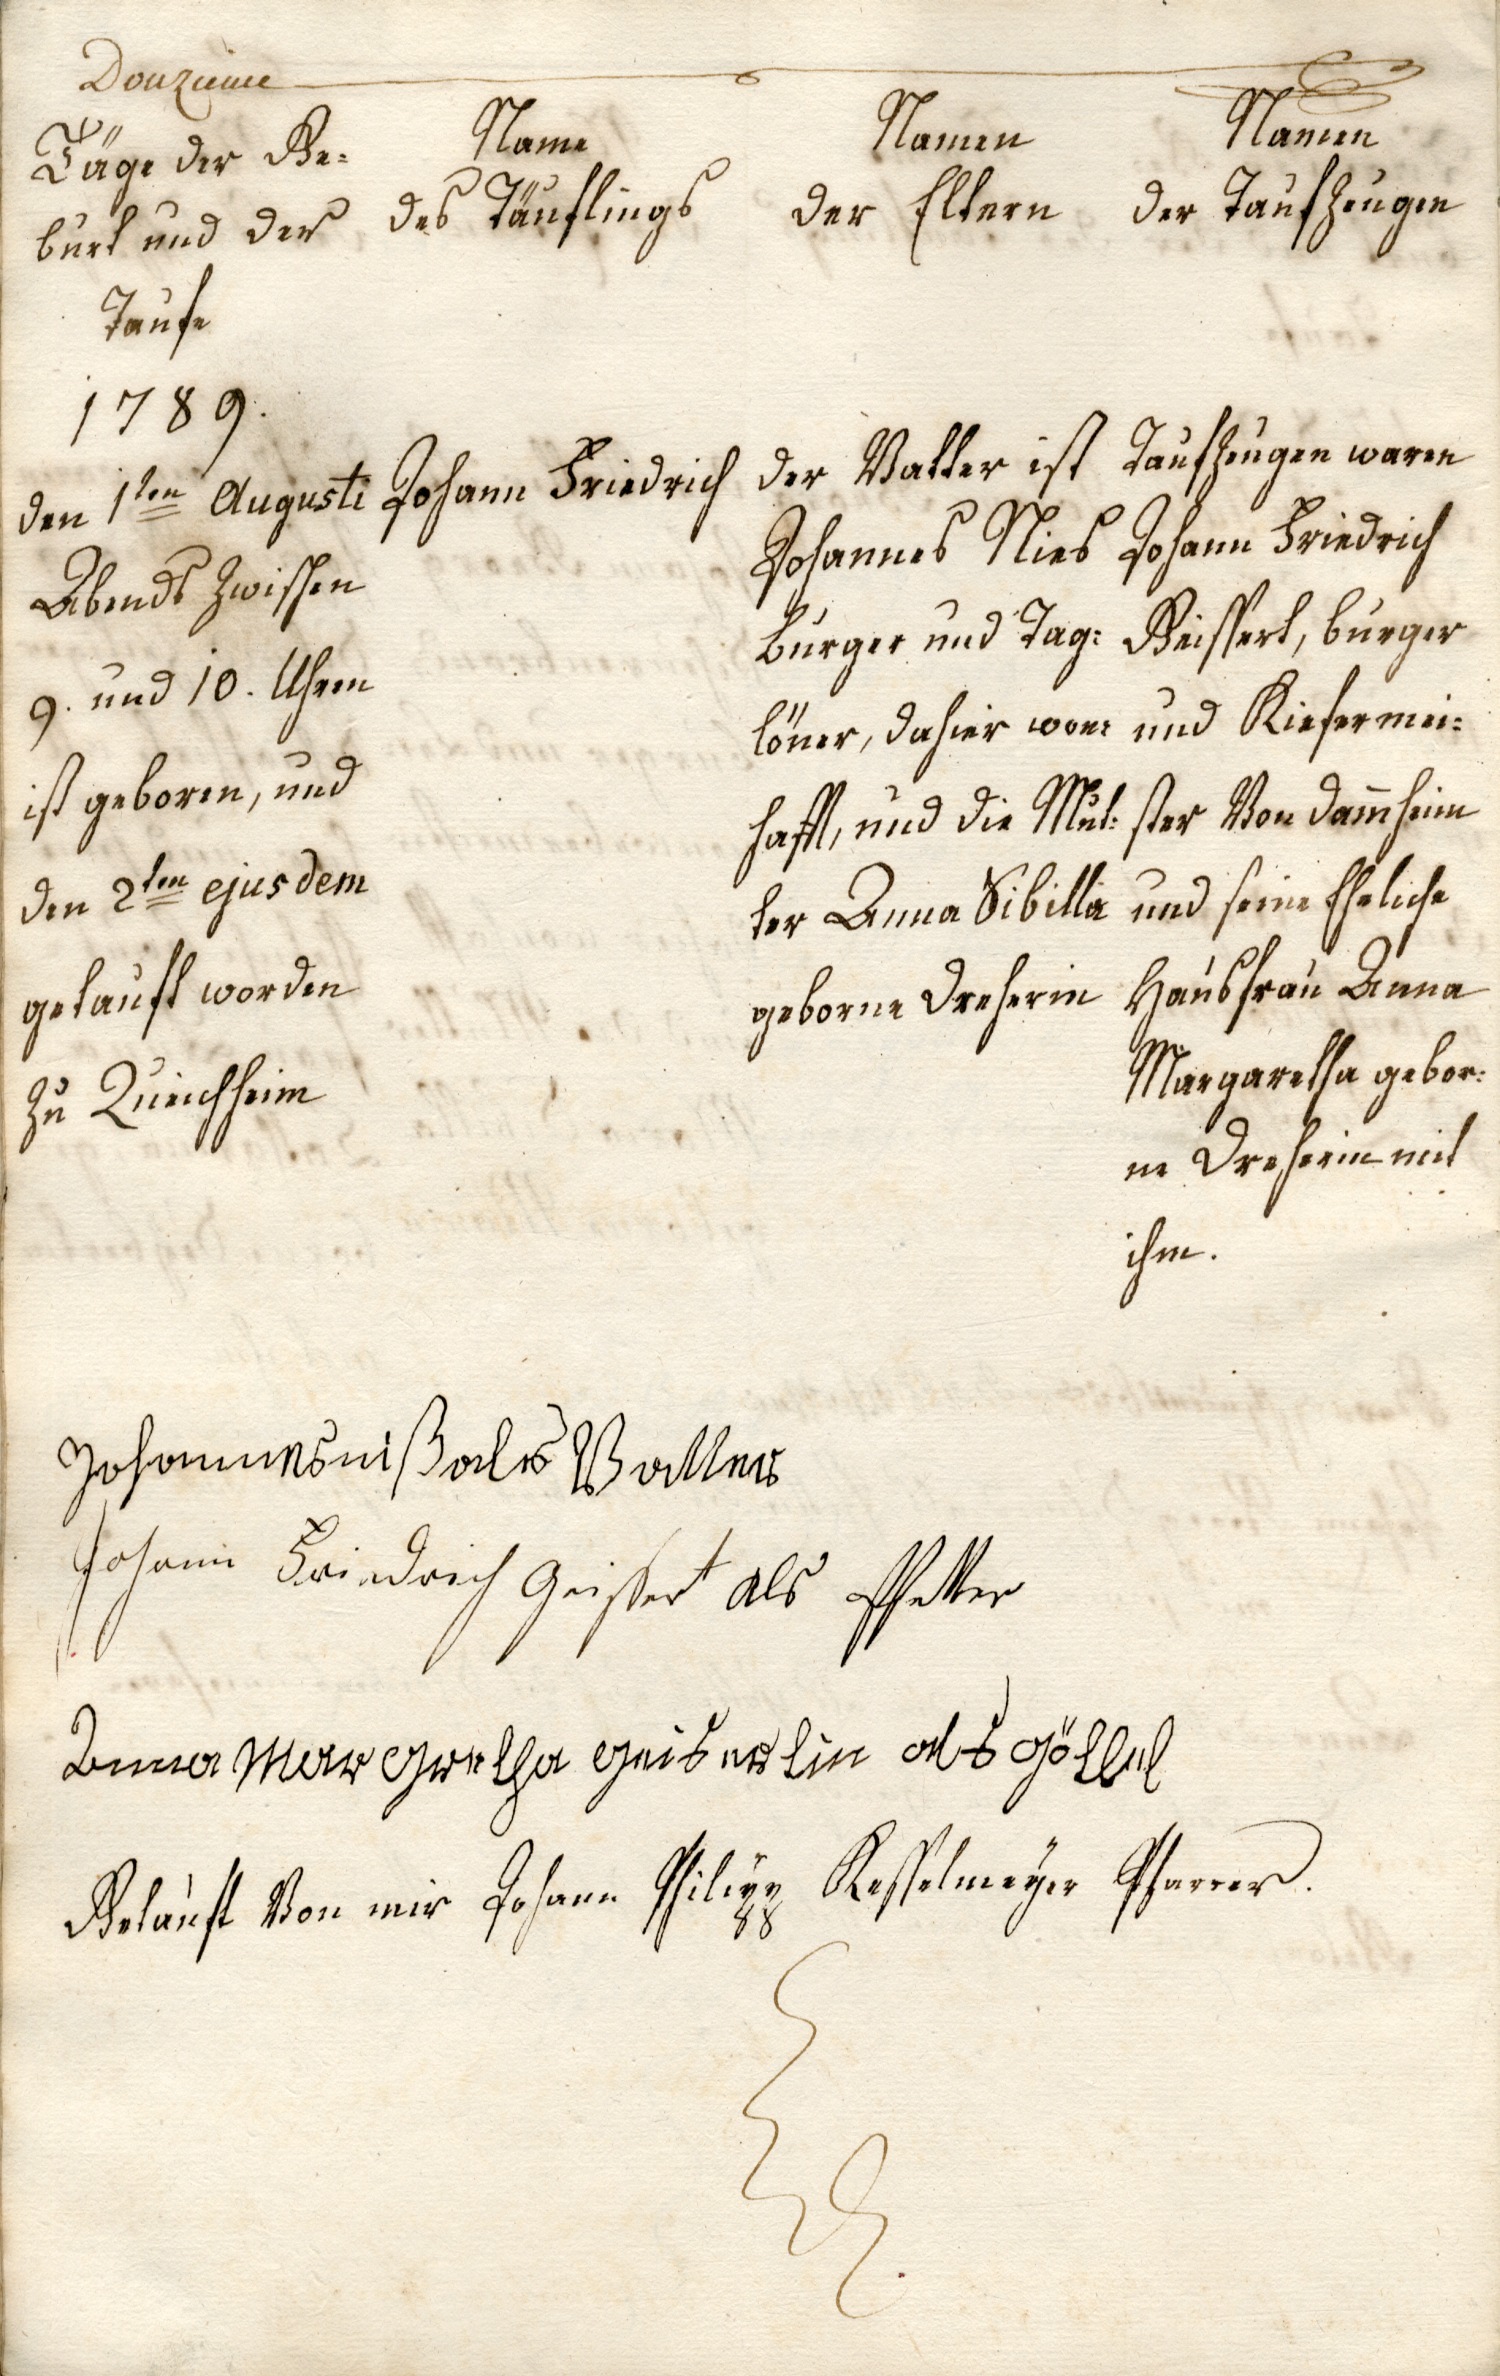 Douzieme
Täge der Ge=
burt und der
Taufe
Name
des Täuflings
Namen
der Eltern
Namen
der Taufzeugen
1789.
den 1ten Augusti
Abends zwischen
9. und 10. Uhren
ist geboren, und
den 2ten ejusdem
getauft worden
zu Queichheim
Johann Friedrich
der Vatter ist
Johannes Nies
burger und Tag=
löner, dahier won=
hafft, und die Mut=
ter Anna Sibilla
geborne Dreherin
Taufzeugen waren
Johann Friedrich
Geissert, burger
und Kiefermei=
ster Von Dam̅heim
und seine Eheliche
Hausfrau Anna
Margaretha gebor=
ne Dreherin mit
ihm.
Johannes niß als Vatter
Johann Friedrich Geissert als Pfetter
Anna Margretha geisertin als göttel
Getauft Von mir Johann Philipp Kesselmeyer Pfarrer.